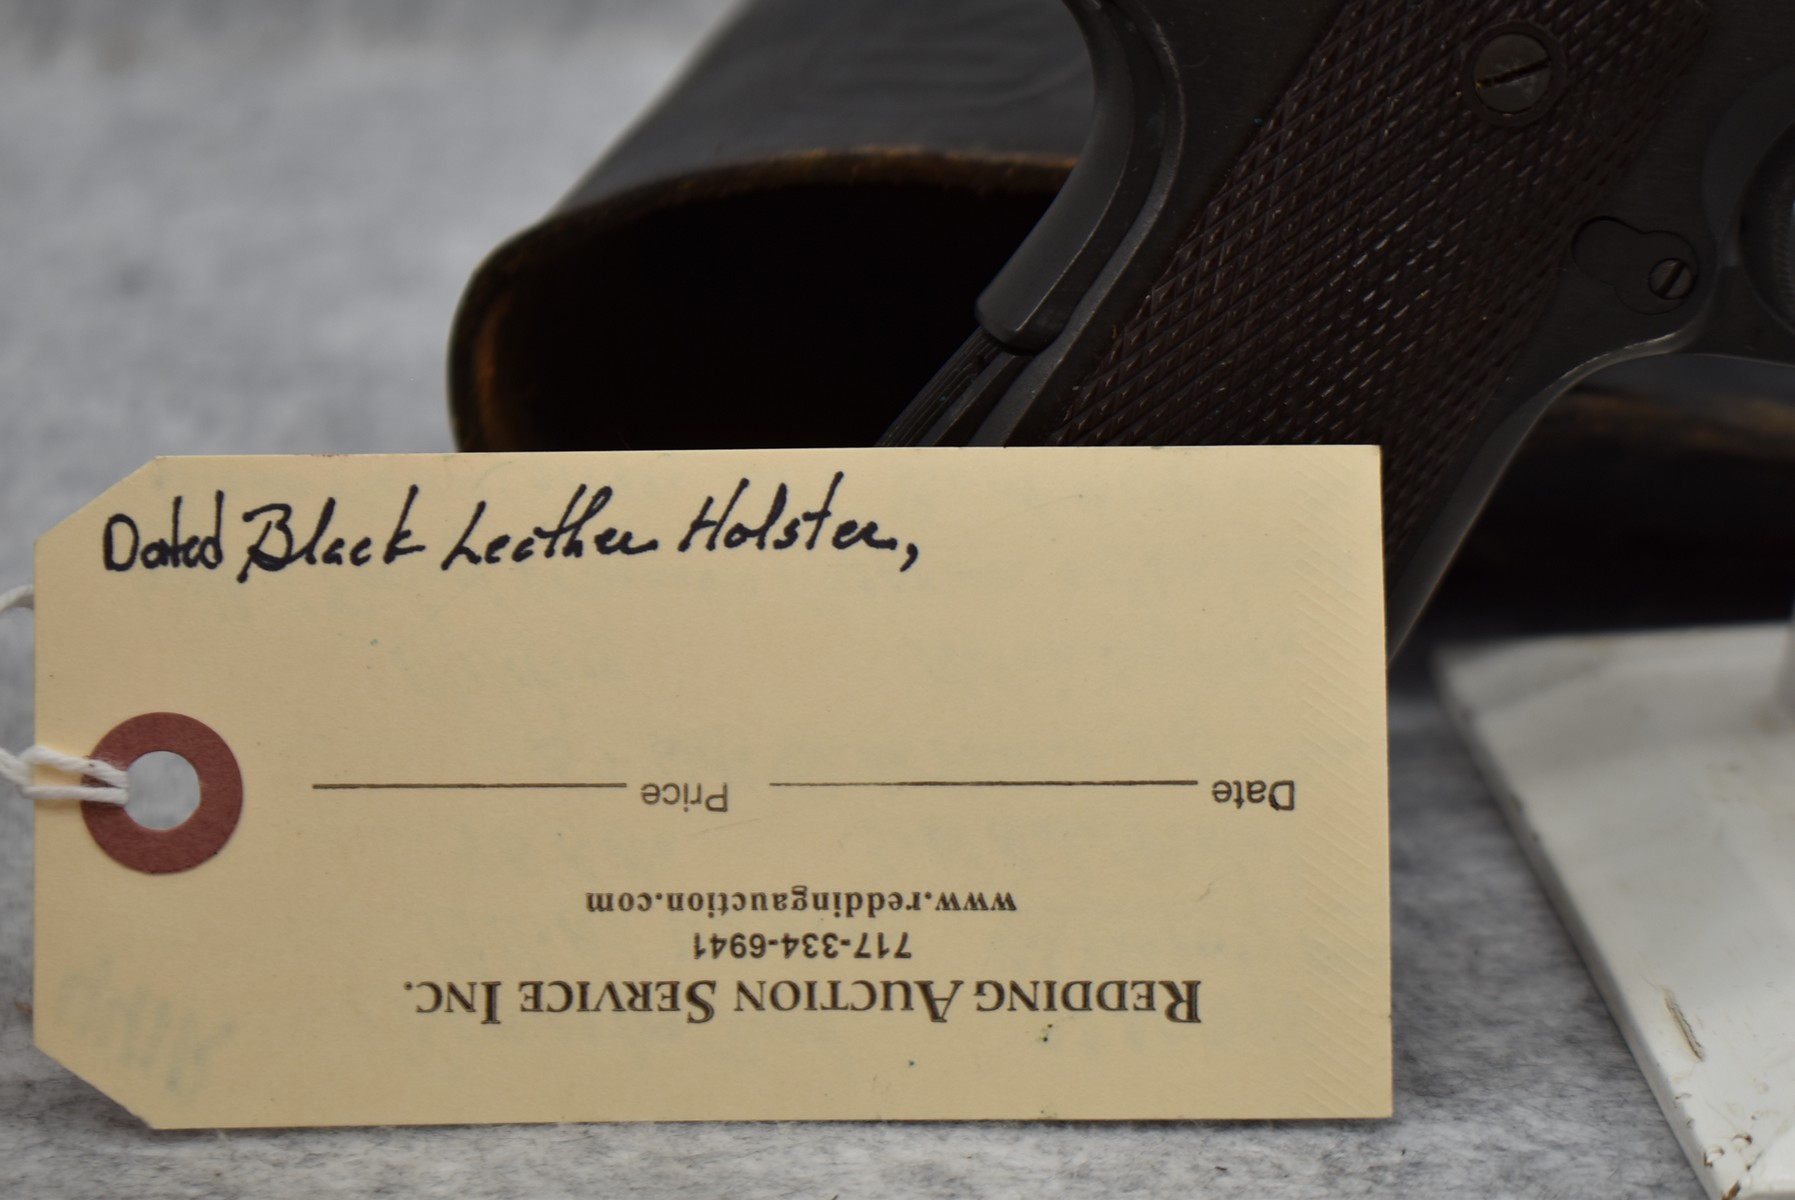 Dated Black Leather Holster,
REDDING AUCTION SERVICE INC.
717-334-6941
www.reddingauction.com
Date Price